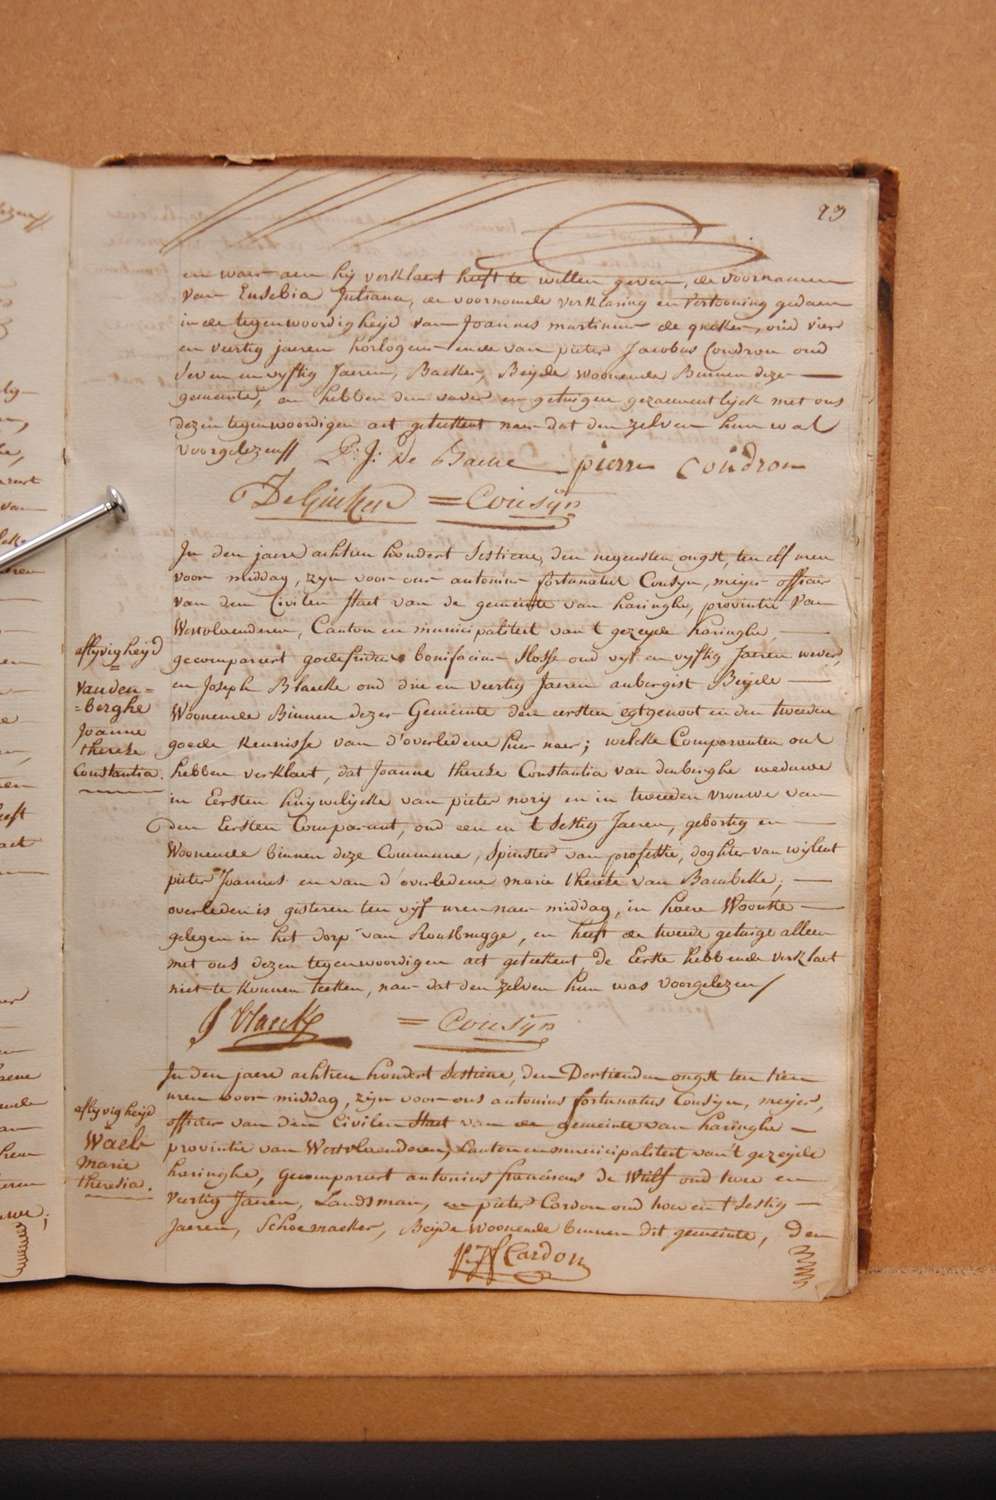 23
en waer aen hij verklaert heeft te willen geven, de voornamen
van Eusebia Juliana, de voornomde verklaring en vertooning gedaen
in de tegenwoordigheijd van Joannes martinus de gueker, oud vier
en veertig jaeren horlogier ende van pieter Jacobus Coudron oud
Seven en vyftig Jaeren, Backer, Beijde woonende Binnen deze
gemeinte, en hebben den vader en getuigen gezaementlijck met ons
dezen tegenwoordigen act geteekent naer dat den zelven hun wal
voorgelezen// P: J: De Baene pierre Coudron
DeGueker = Cousijn
In den jaere achtien hondert Sestiene, den negensten ougst, ten elf uren
voor middag, zijn voor ons antonius fortunatus Cousyn, meijer officier
van den Civilen Staet van de gemeinte van haringhe, provintie van
Westvlaenderen, Canton en municipaliteit van 't gezeyde haringhe,
gecompareert godefridus bonifacius Stosse oud vyf en vyftig Jaeren wever,
en Joseph Blaecke oud drie en veertig Jaeren aubergist Beijde
Woonende Binnen dezer Gemeinte den eersten egtgenoot en den tweeden
goede kennisse van d'overledene hier naer; welcke Comparanten ons
hebben verklaert, dat Joanne therese Constantia van denberghe weduwe
in Eersten huijwelijcke van pieter norij en in tweeden vrouwe van
den Eersten Comparant, oud een en t Sestig Jaeren, geboortig en
Woonende binnen deze Commune, Spinster van professie, doghter van wijlent
pieter Joannes en van d'overledene marie therese van Baembeke,
overleden is gisteren ten vijf uren naer middag, in haere Woonste
gelegen in het dorp van Rousbrugge, en heeft de tweede getuige alleen
met ons dezen tegenwoordigen act geteekent de Eerste hebbende verklaert
niet te konnen teeken, naer dat den zelven hun was voorgelezen/
aflyvigheijd
=
van den=
=berghe
Joanne
therese
Constantia.
J Blaecke = Cousijn
In den jaere achtien hondert Sestiene, den Dertienden ougst ten tien
uren voor middag, zijn voor ons antonius fortunatus Cousyn, meijer,
officier van den Civilen Staet van de gemeinte van haringhe
provintie van Westvlaenderen, Canton en municipaliteit van 't gezeijde
haringhe, gecompareert antonius franciscus de Wulf oud twee en
veertig Jaeren, Landsman, en pieter Cardon oud twee en t Sestig
Jaeren, Schoemaeker, Beijde woonende binnen dit gemeinte, den
aflyvigheijd
Waels
marie
theresia.
Cardon